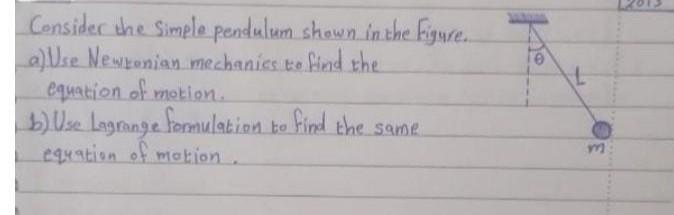 Consider the Simple pendulum shown in the Figure.
a) Use Newtonian mechanics to find the
equation of motion.
b) Use Lagrange formulation to find the same
equation of motion.
θ
L
m